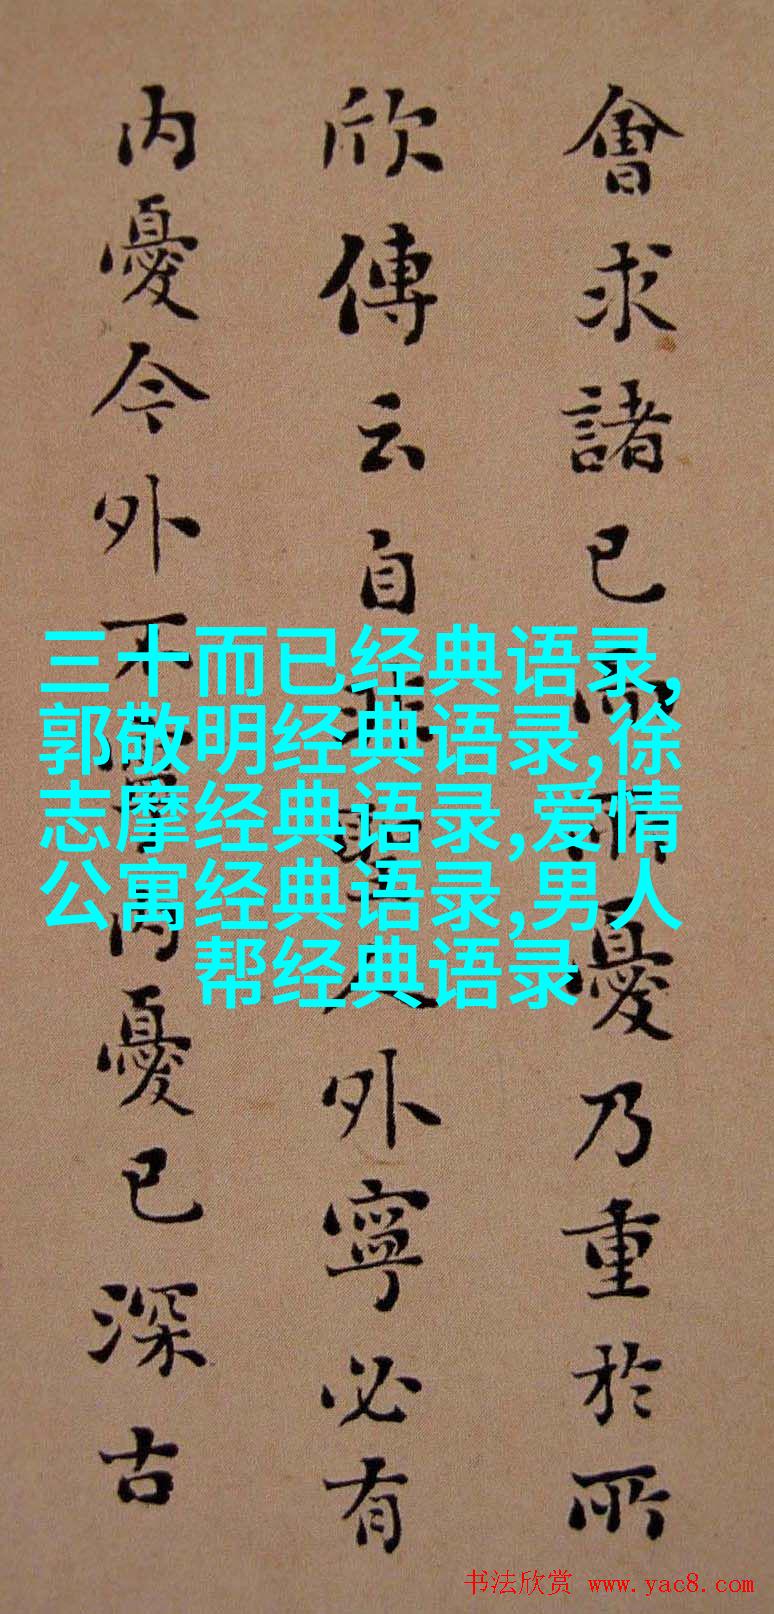 會求諸己而所憂乃重於所
欣傳云自聖人外寧必有
内憂今外不内憂已深古
三十而已经典语录,
郭敬明经典语录,徐
志摩经典语录,爱情
公寓经典语录,男人
帮经典语录
书法欣赏 www.yac8.com